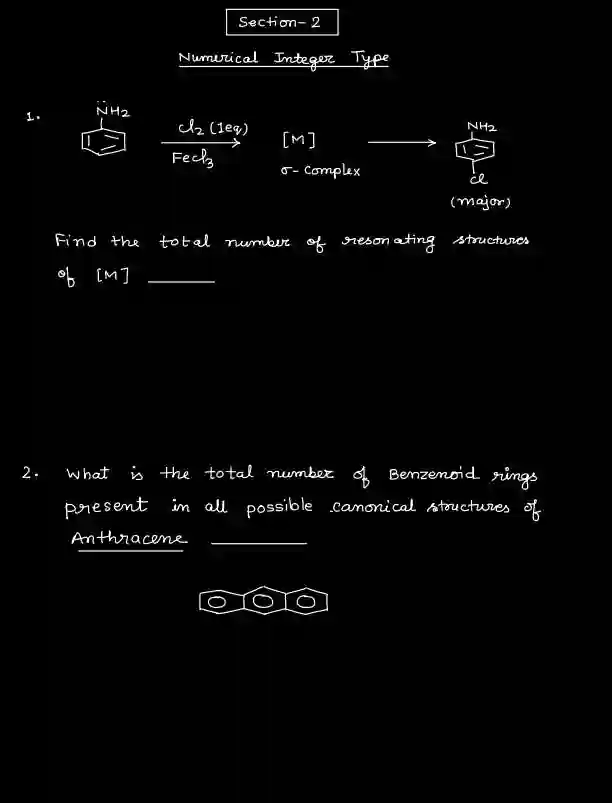 Section-2
Numerical Integer Type
1.
N̈H2
Cl2 (1eq)
FeCl3
[M]
σ-Complex
NH2
Cl
(major)
Find the total number of resonating structures
of [M] ______
2. What is the total number of Benzenoid rings
present in all possible canonical structures of
Anthracene ______